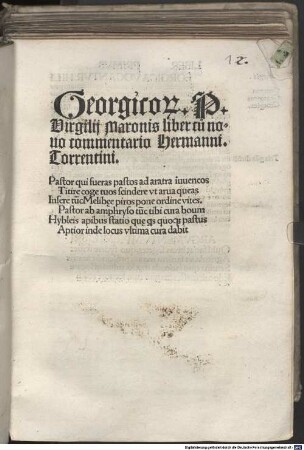 12.
Georgicoꝝ. P.
Virgilij Maronis liber cū no-
uo commentario Hermanni.
Torrentini.
Pastor qui fueras pastos ad aratra iuuencos
Titire coge tuos scindere vt arua queas
Insere tūc Melibee piros pone ordine vites.
Pastor ab amphryso tūc tibi cura boum
Hybleis apibus statio que
Aptior inde locus vltima cura dabit